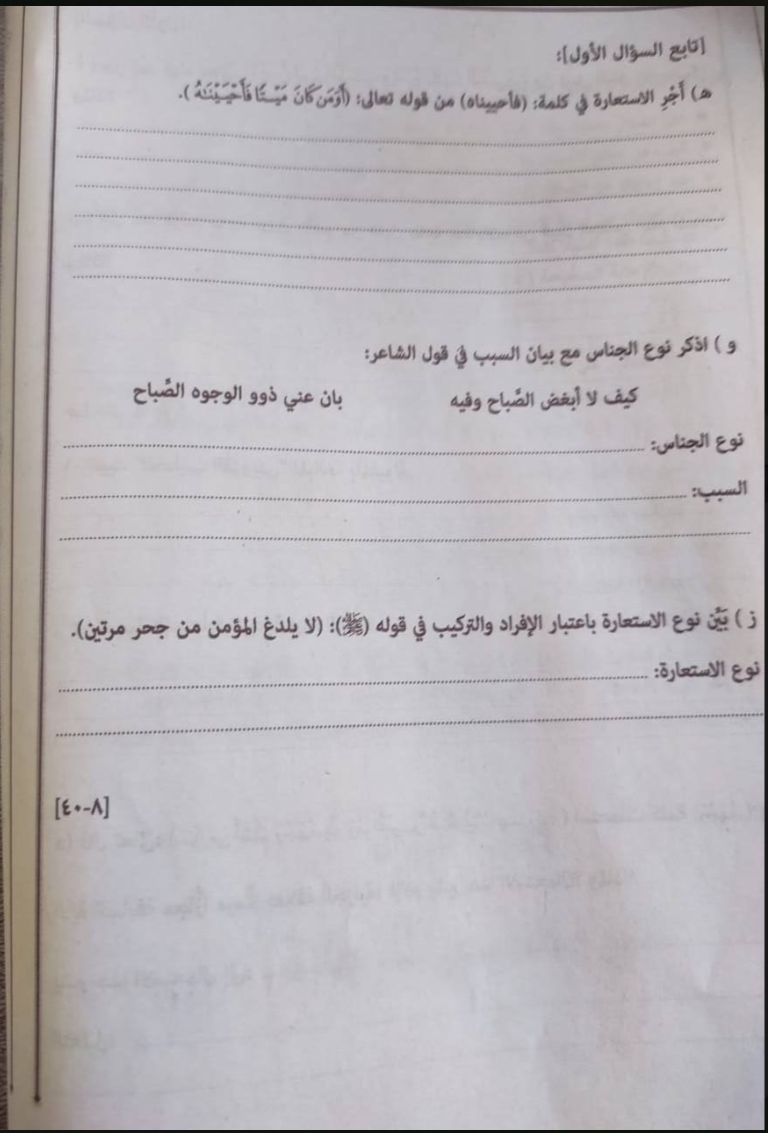 [تابع السؤال الأول]:
هـ) أَجْرِ الاستعارة في كلمة: (فأحييناه) من قوله تعالى: (أَوَمَن كَانَ مَيْتًا فَأَحْيَيْنَٰهُ).
و ) اذكر نوع الجناس مع بيان السبب في قول الشاعر:
كيف لا أبغض الصَّباح وفيه بان عني ذوو الوجوه الصِّباح
نوع الجناس:
السبب:
ز ) بَيِّن نوع الاستعارة باعتبار الإفراد والتركيب في قوله (ﷺ): (لا يلدغ المؤمن من جحر مرتين).
نوع الاستعارة:
[٨-٤٠]